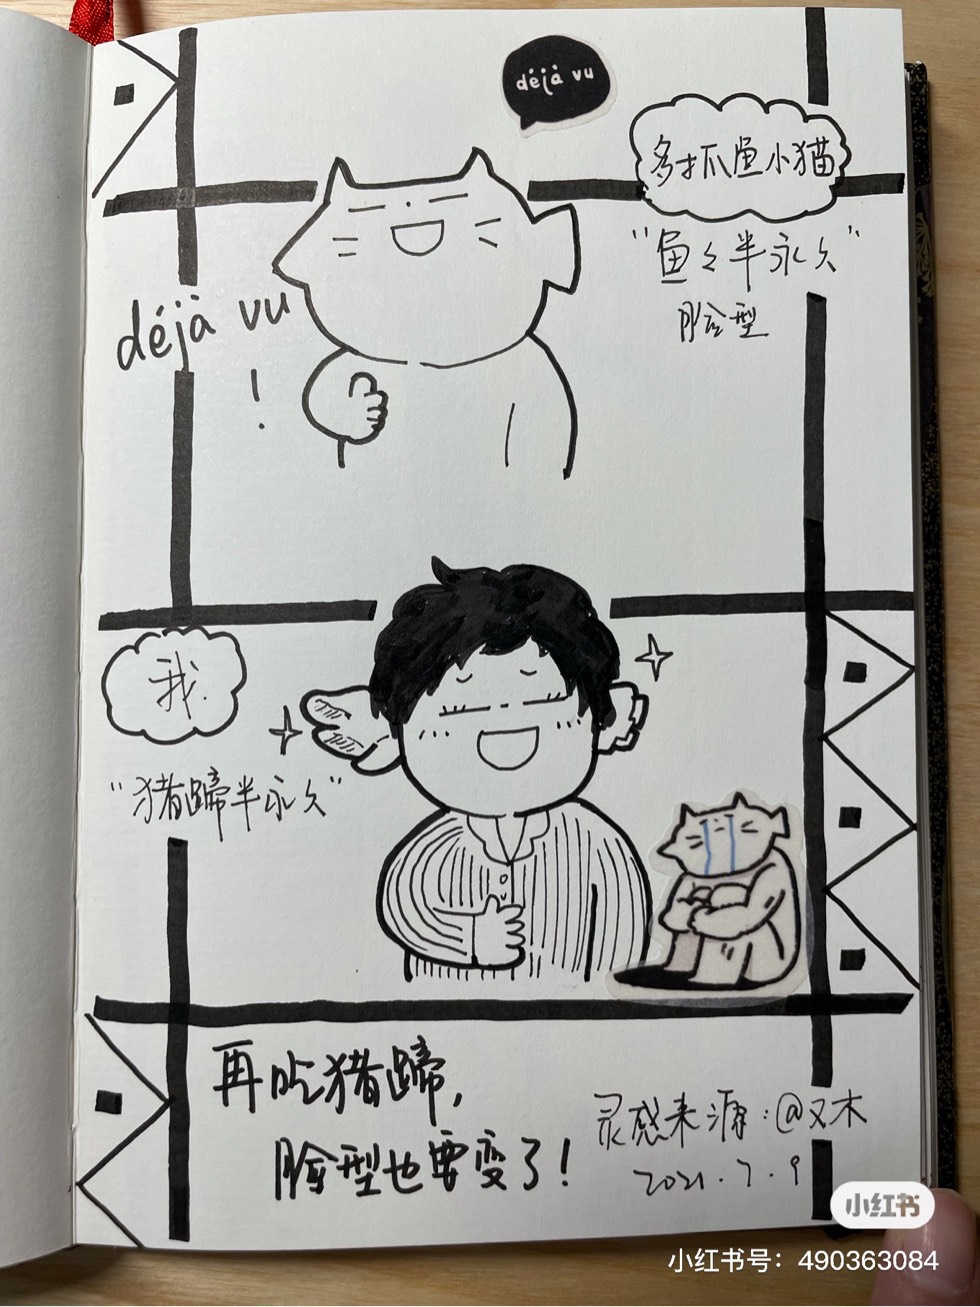 déjà vu
多抓鱼小猫
"鱼々半永久"
脸型
déjà vu
!
我.
"猪蹄半永久"
再吃猪蹄,
脸型也要变了!
灵感来源:@又木
2021.7.9
小红书
小红书号：490363084